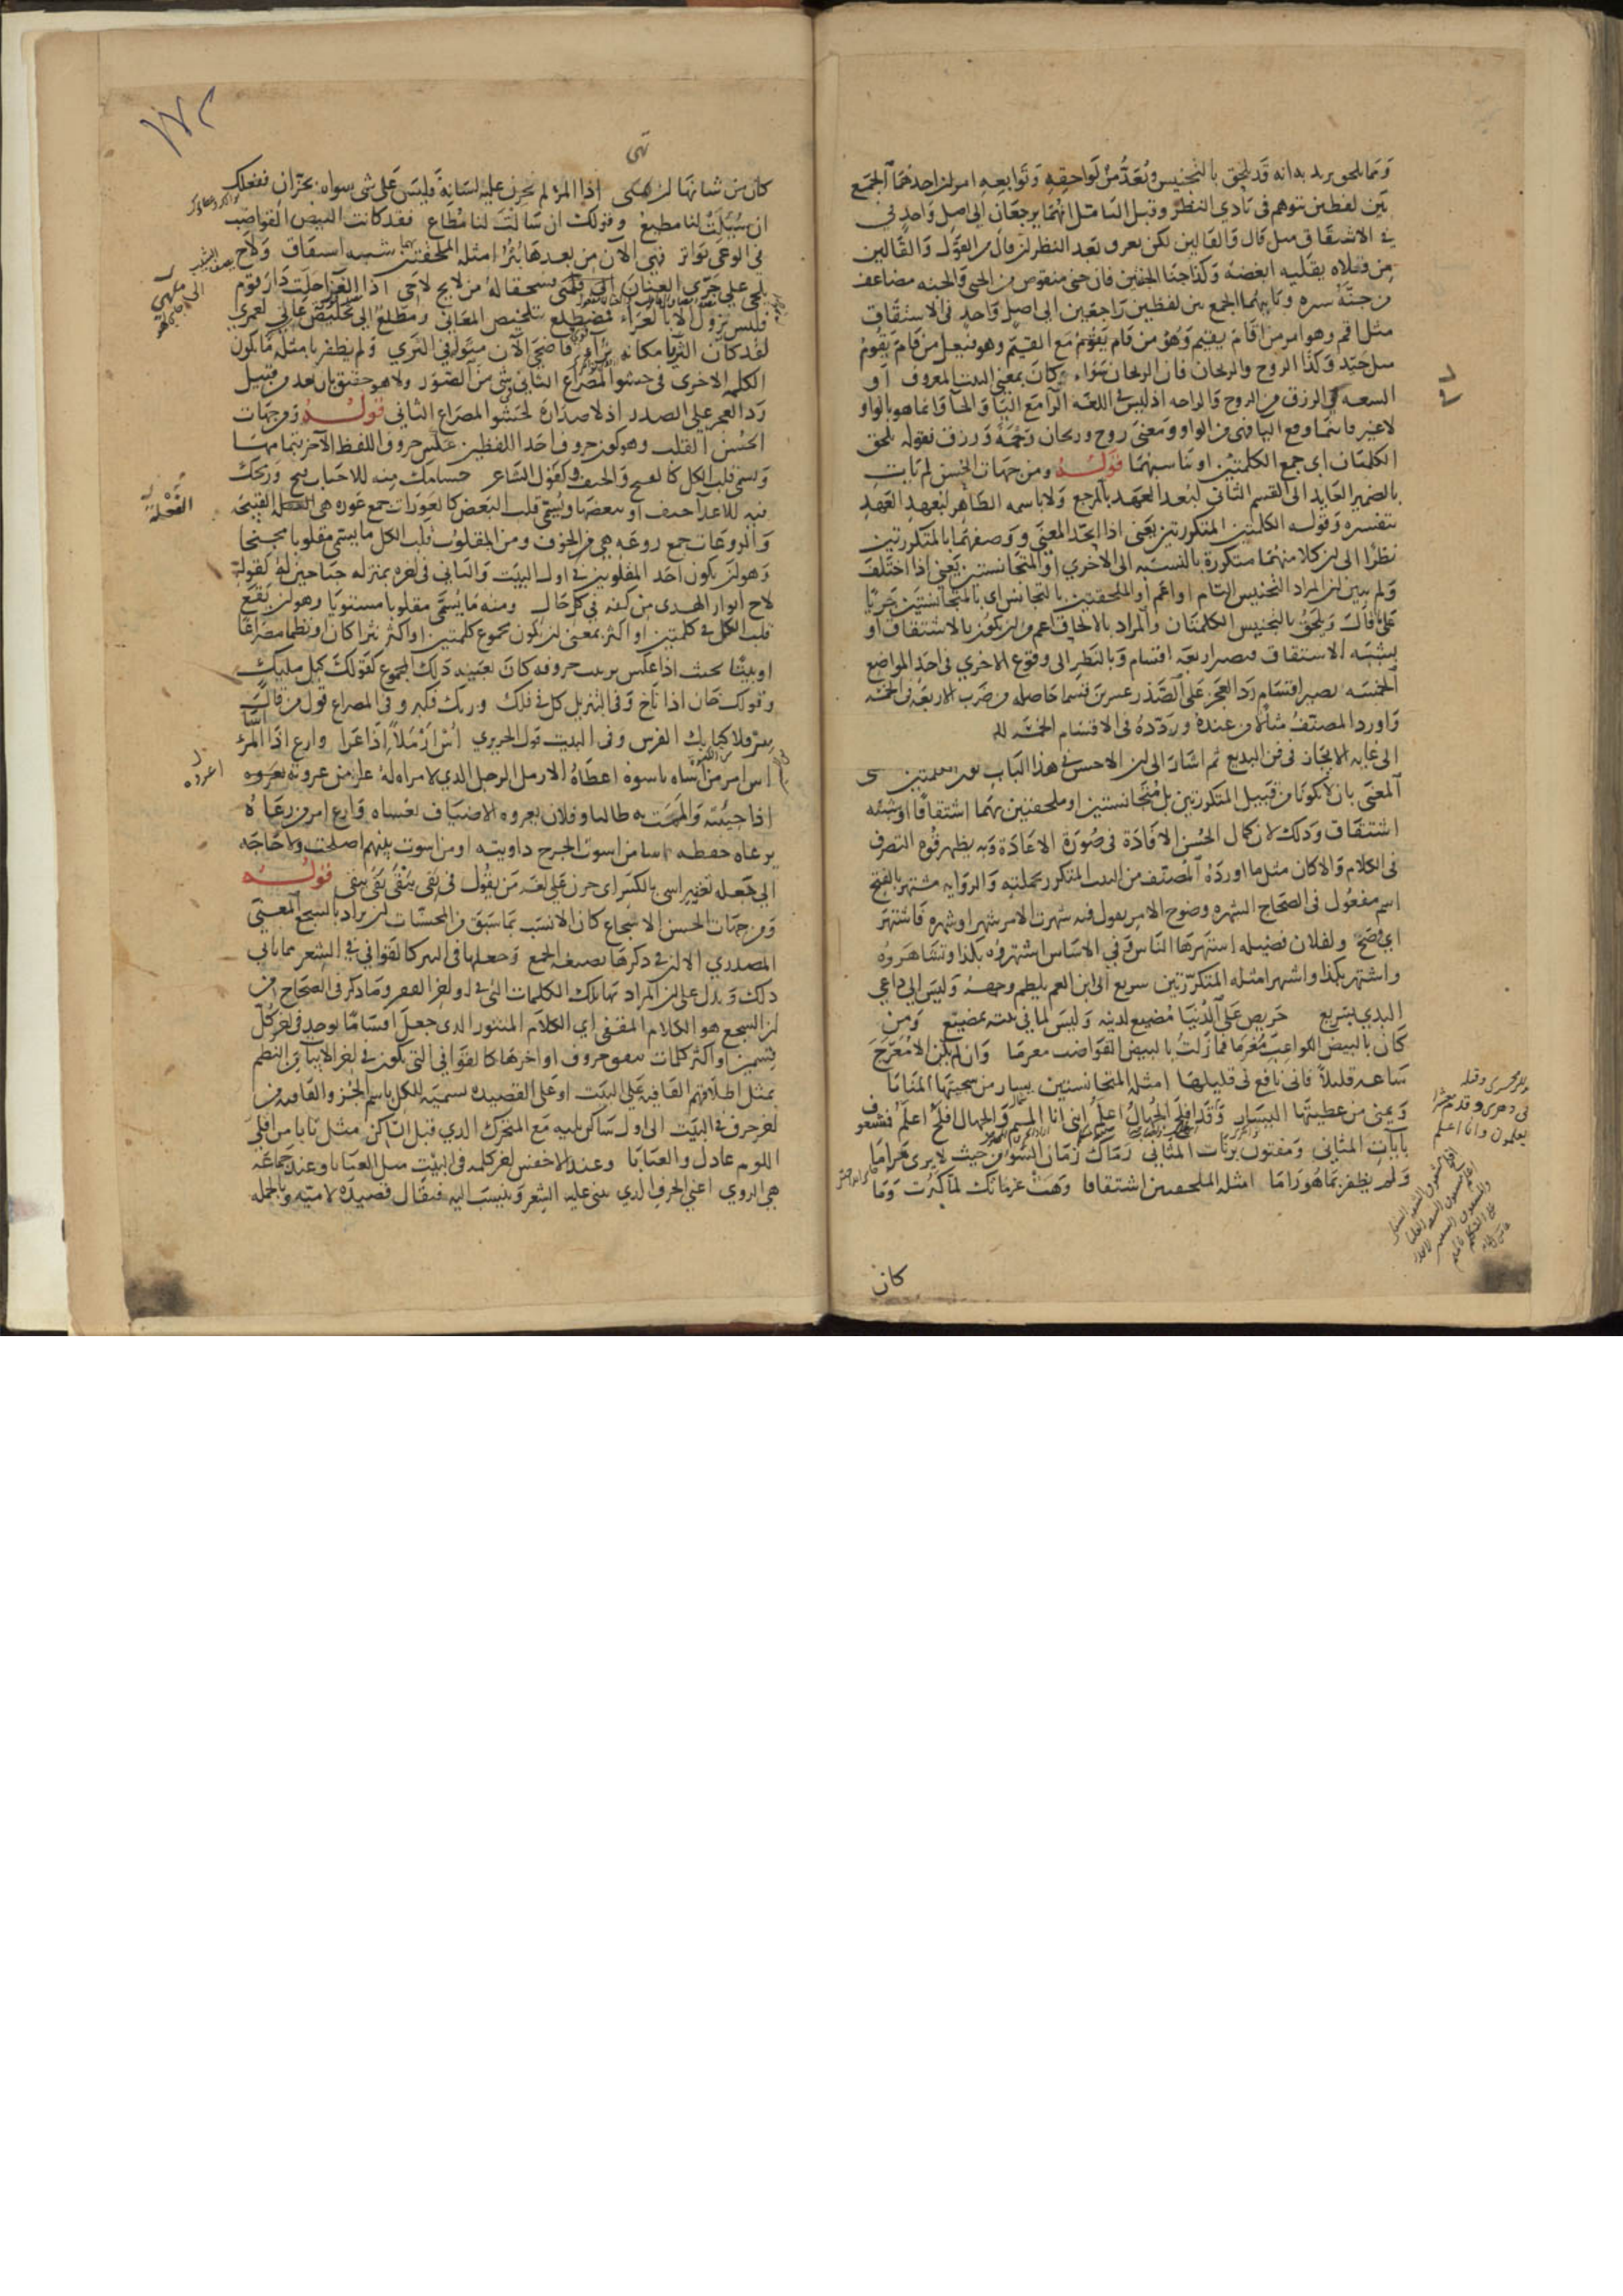 ومما يلحق يريد به انه قد يلحق بالتجنيس ويعد من لواحقه وتوابعه امران احدهما الجمع
بين لفظين يتوهم في بادي النظر وقبل التامل انهما يرجعان الى اصل واحد في
الاشتقاق مثل قال والقالين لكن يعرف بعد النظر ان قال من القول والقالين
من قلاه يقليه ابغضه وكذا جنا الجنتين فان جنى منقوص من الجنى والجنه مضاعف
من جنه ستره وثانيهما الجمع بين لفظين راجعين الى اصل واحد في الاشتقاق
مثل اقم وهو امر من اقام يقيم وهو من قام يقوم مع القيم وهو فيعل من قام يقوم
مثل جيد وكذا الروح والريحان فان الريحان سواء كان بمعنى النبت المعروف او
السعه في الرزق من الروح والراحه اذ ليس في اللغه الرا مع اليا والحا وانما هو بالواو
لا غير وانما وقع اليا في من الواو ومعنى روح وريحان رحمة ورزق فقوله يلحق
الكلمتان اى جمع الكلمتين او تناسبهما قوله ومن جهات الحسن لم يات
بالضمير العايد الى القسم الثاني لبعد العهد بالمرجع ولا باسمه الظاهر لبعهد العهد
بتفسيره وقوله الكلمتين المتكررتين يعنى اذا اتحد المعنى ووصفهما بالمتكررتين
نظرا الى ان كلا منهما متكررة بالنسبه الى الاخرى او المتجانستين يعني اذا اختلف
ولم يبين ان المراد التجنيس التام او اعم او الملحقتين بالتجانس اى بالمتجانستين جريا
على ما قال ويلحق بالتجنيس الكلمتان والمراد بالالحاق اعم من ان يكون بالاشتقاق او
بشبه الاشتقاق فيصير اربعه اقسام وبالنظر الى وقوع الاخرى في احد المواضع
الخمسه يصير اقسام رد العجز على الصدر عشرين قسما حاصله من ضرب الاربعه في الخمسه
واورد المصنف مثلا من عنده وردده في الاقسام الخمسه
الى غايه الايجاز في فن البديع ثم اشار الى ان الاحسن في هذا الباب
المعنى بان لا يكونا من قبيل المتكررتين بل متجانستين او ملحقتين بهما اشتقاقا او شبه
اشتقاق وذلك لان كمال الحسن الافادة في صورة الاعادة وبه يظهر قوه التصرف
في الكلام والا كان مثل ما اورده المصنف من البيت المتكرر بجملته والروايه مشتهر بالفتح
اسم مفعول في الصحاح الشهره وضوح الامر يقول فيه شهرت الامر شهرا وشهره فاشتهر
اي وضح ولفلان فضيله اشتهرها الناس وفي الاساس اشتهروه بكذا وتشاهروه
واشتهر بكذا واشهر امثله المتكررتين سريع الى ابن العم يلطم وجهه وليس الى داعي
الندي بسريع حريص على الدنيا مضيع لدينه وليس لما في بيته بمضيع ومن
كان بالبيض الكواعب مغرما فما زلت بالبيض القواضب مغرما وان لم يكن الا معرج
ساعه قليلا فاني نافع لي قليلها امثله المتجانستين بيسار من سجيتها المنايا
ويمنى من عطيتها اليسار وقد افلح الجهال اعلم انني انا الميم والجهال افلح اعلم فمشغوف
بايات المثاني ومفتون برنات المثاني رماك زمان السوء من حيث لا يرى مراما
ولم يظفر بما هو راما امثله الملحقتين اشتقاقا وهت عزماتك لما كبرت وما
كان
كان من شانها ان تهي اذا المرء لم يخزن عليه لسانه فليس على شى سواه بخزان ففعلك
ان سيلت لنا مطيع وقولك ان سالت لنا مطاع فقد كانت البيض القواضب
في الوغى بواتر فهي الان من بعدها بتر امثله الملحقتين بهما شبه اشتقاق ولاح
يلحى على جري العنان الى ملهى فسحقا له من لايح لاحى
فليس يزول الا بالعزاء مضطلع بتلخيص المعاني ومطلع الى تخليص عاني لعمري
لقد كان الثريا مكانه ثراء فاضحى الان مثواه في الثرى ولم يظفر بامثله ما يكون
الكلمه الاخرى في حشو المصراع الثاني
رد العجز على الصدر اذ لا صدارة لحشو المصراع الثاني قوله ومن جهات
الحسن القلب وهو كون حروف احد اللفظين عكس حروف اللفظ الاخر
ويسمى قلب الكل كالفتح والحتف في كقول الشاعر حسامك منه للاحباب فتح ورمحك
فيه للاعدا حتف او بعضها ويسمى قلب البعض كالعورات جمع عوره هي الفعلة القبيحه
والروعات جمع روعه هي من الخوف ومن المقلوب قلب الكل ما يسمى مقلوبا مجنحا
وهو ان يكون احد المقلوبين في اول البيت والثاني في اخره بمنزله جناحين له كقوله
لاح انوار الهدى من كفه في كل حال ومنه ما يسمى مقلوبا مستويا وهو ان يقع
قلب الكل في كلمتين او اكثر بمعنى ان يكون مجموع كلمتين او اكثر نثرا كان او نظما مصراعا
او بيتا بحيث اذا عكس ترتيب حروفه كان بعينه ذلك المجموع كقولك كيل مليك
وقولك خان اذا ناخ وفي التنزيل كل في فلك وربك فكبر وفي المصراع قول من قال
سر فلا كبا بك الفرس وفي البيت قول الحريري اس ارملا اذا عرا وارع اذا المرء اسا
اس امر من اساه ياسوه اعطاه الارمل الرجل الذي لا امراه له عرا من عروته اعروه
اذا جيئته والممت به طالبا وفلان يعروه الاضياف تغشاه وارع امر من رعاه
يرعاه حفظه اسا من اسوت الجرح داويته او من اسوت بينهم اصلحت ولا حاجه
الى جعله تغيير اسى بالكسر اى حزن على لغه من يقول في بقى يبقى بقى يبقى قوله
ومن جهات الحسن الاسجاع كان الانسب بما سبق من المحسنات ان يراد بالسجع المعنى
المصدري الا ان في ذكرها بصيغه الجمع وجعلها في النثر كالقوافي في الشعر مما يابى
ذلك ويدل على ان المراد بها تلك الكلمات التي في اواخر الفقر وما ذكر في الصحاح من
ان السجع هو الكلام المقفى اي الكلام المنثور الذي جعل اقساما توجد في اخر كل
قسمين او اكثر كلمات تتفق حروف اواخرها كالقوافي التي تكون في اخر الابيات من النظم
بمثل اطلاقهم القافيه على البيت او على القصيده تسميه للكل باسم الجزء والقافيه من
اخر حرف في البيت الى اول ساكن يليه مع المتحرك الذي قبل الساكن مثل تابا من اقلي
اللوم عاذل والعتابا وعند الاخفش اخر كلمه في البيت مثل العتابا وعند جماعه
هي الروي اعني الحرف الذي يبنى عليه الشعر وينسب اليه فيقال قصيدة لاميه وبالجمله